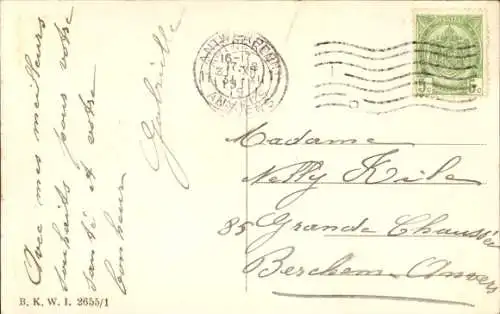 Avec mes meilleurs
souhaits pour votre
santé et votre
bonheur
Gabrielle
B. K. W. I. 2655/1
ANTWERPEN
ANVERS
5c 5c
Madame
Nelly Kile
85 Grande Chaussée
Berchem-Anvers